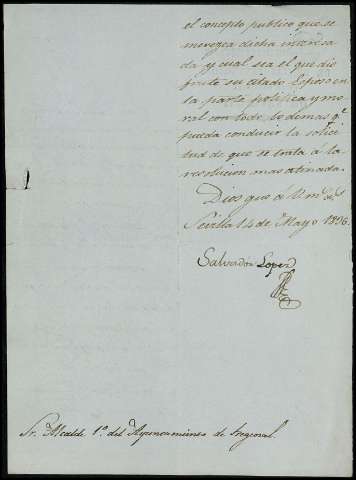 el concepto publico que se
merezca dicha interesa
da y cual sea el que dis
frute su citado Esposo en
la parte politica y mo
ral con todo lo demas q.e
pueda conducir la solici
tud de que se trata á la
resolucion mas atinada.
Dios gue á V. m.s a.s
Sevilla 14 de Mayo 1836.
Salvador Lopez
Sr. Alcalde 1.º del Ayuntamiento de Fregenal.